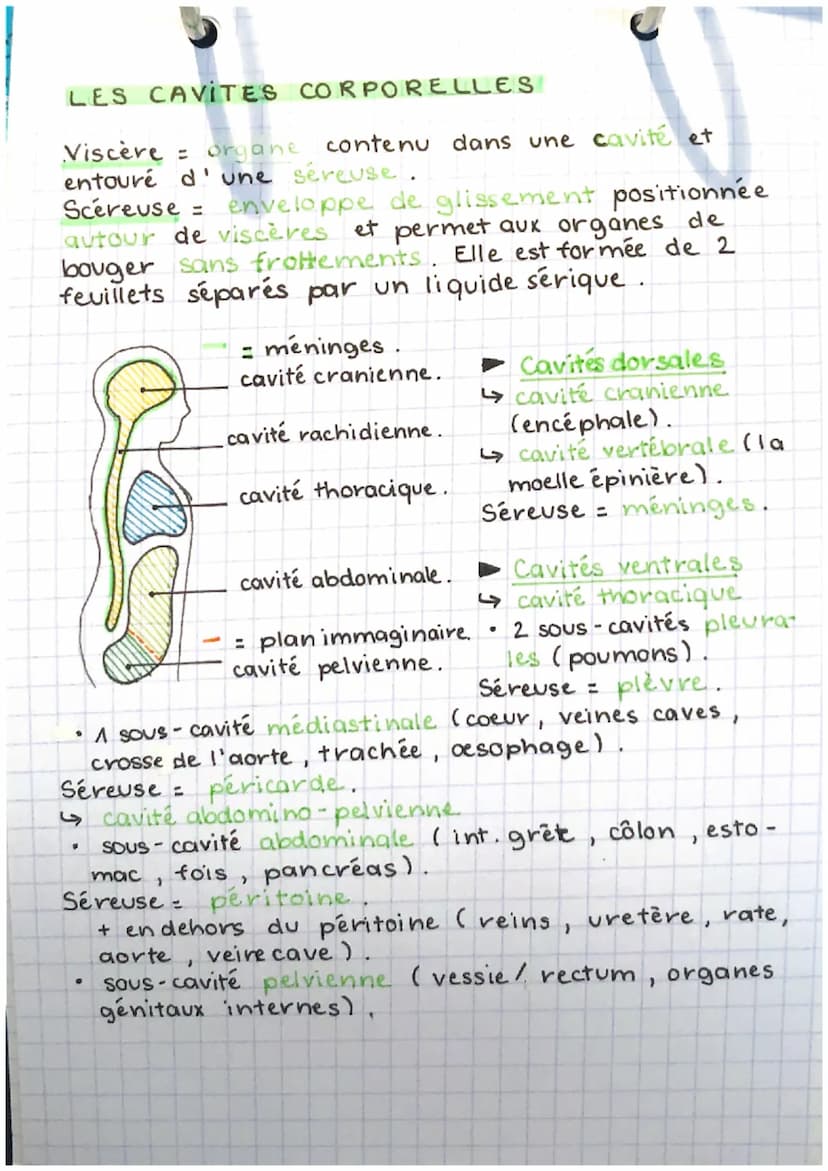 LES CAVITES CORPORELLES
Viscère = organe contenu dans une cavité et
entouré d'une séreuse.
Scéreuse = enveloppe de glissement positionnée
autour de viscères et permet aux organes de
bouger sans frottements. Elle est formée de 2
feuillets séparés par un liquide sérique.
= méninges.
cavité cranienne.
cavité rachidienne.
cavité thoracique.
cavité abdominale.
= plan immaginaire.
cavité pelvienne.
► Cavités dorsales
↳ cavité cranienne
(encéphale).
↳ cavité vertébrale (la
moelle épinière).
Séreuse = méninges.
► Cavités ventrales
↳ cavité thoracique
• 2 sous-cavités pleura-
les (poumons).
Séreuse = plèvre.
• 1 sous-cavité médiastinale (coeur, veines caves,
crosse de l'aorte, trachée, œsophage).
Séreuse = péricarde.
↳ cavité abdomino-pelvienne
• sous-cavité abdominale (int. grêle, côlon, esto-
mac, fois, pancréas).
Séreuse = péritoine.
+ en dehors du péritoine (reins, uretère, rate,
aorte, veine cave).
• sous-cavité pelvienne (vessie/, rectum, organes
génitaux internes).